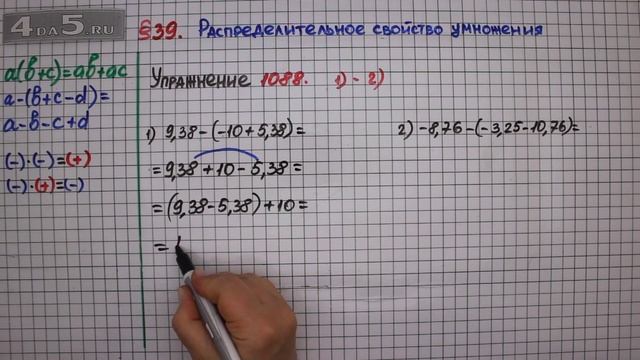 4DA5.RU
§39. Распределительное свойство умножения
a(b+c)=ab+ac
a-(b+c-d)=
a-b-c+d
(-)·(-)=(+)
(-)·(+)=(-)
Упражнение 1088. 1)-2)
1) 9,38-(-10+5,38)=
=9,38+10-5,38=
=(9,38-5,38)+10=
=
2) -8,76-(-3,25-10,76)=